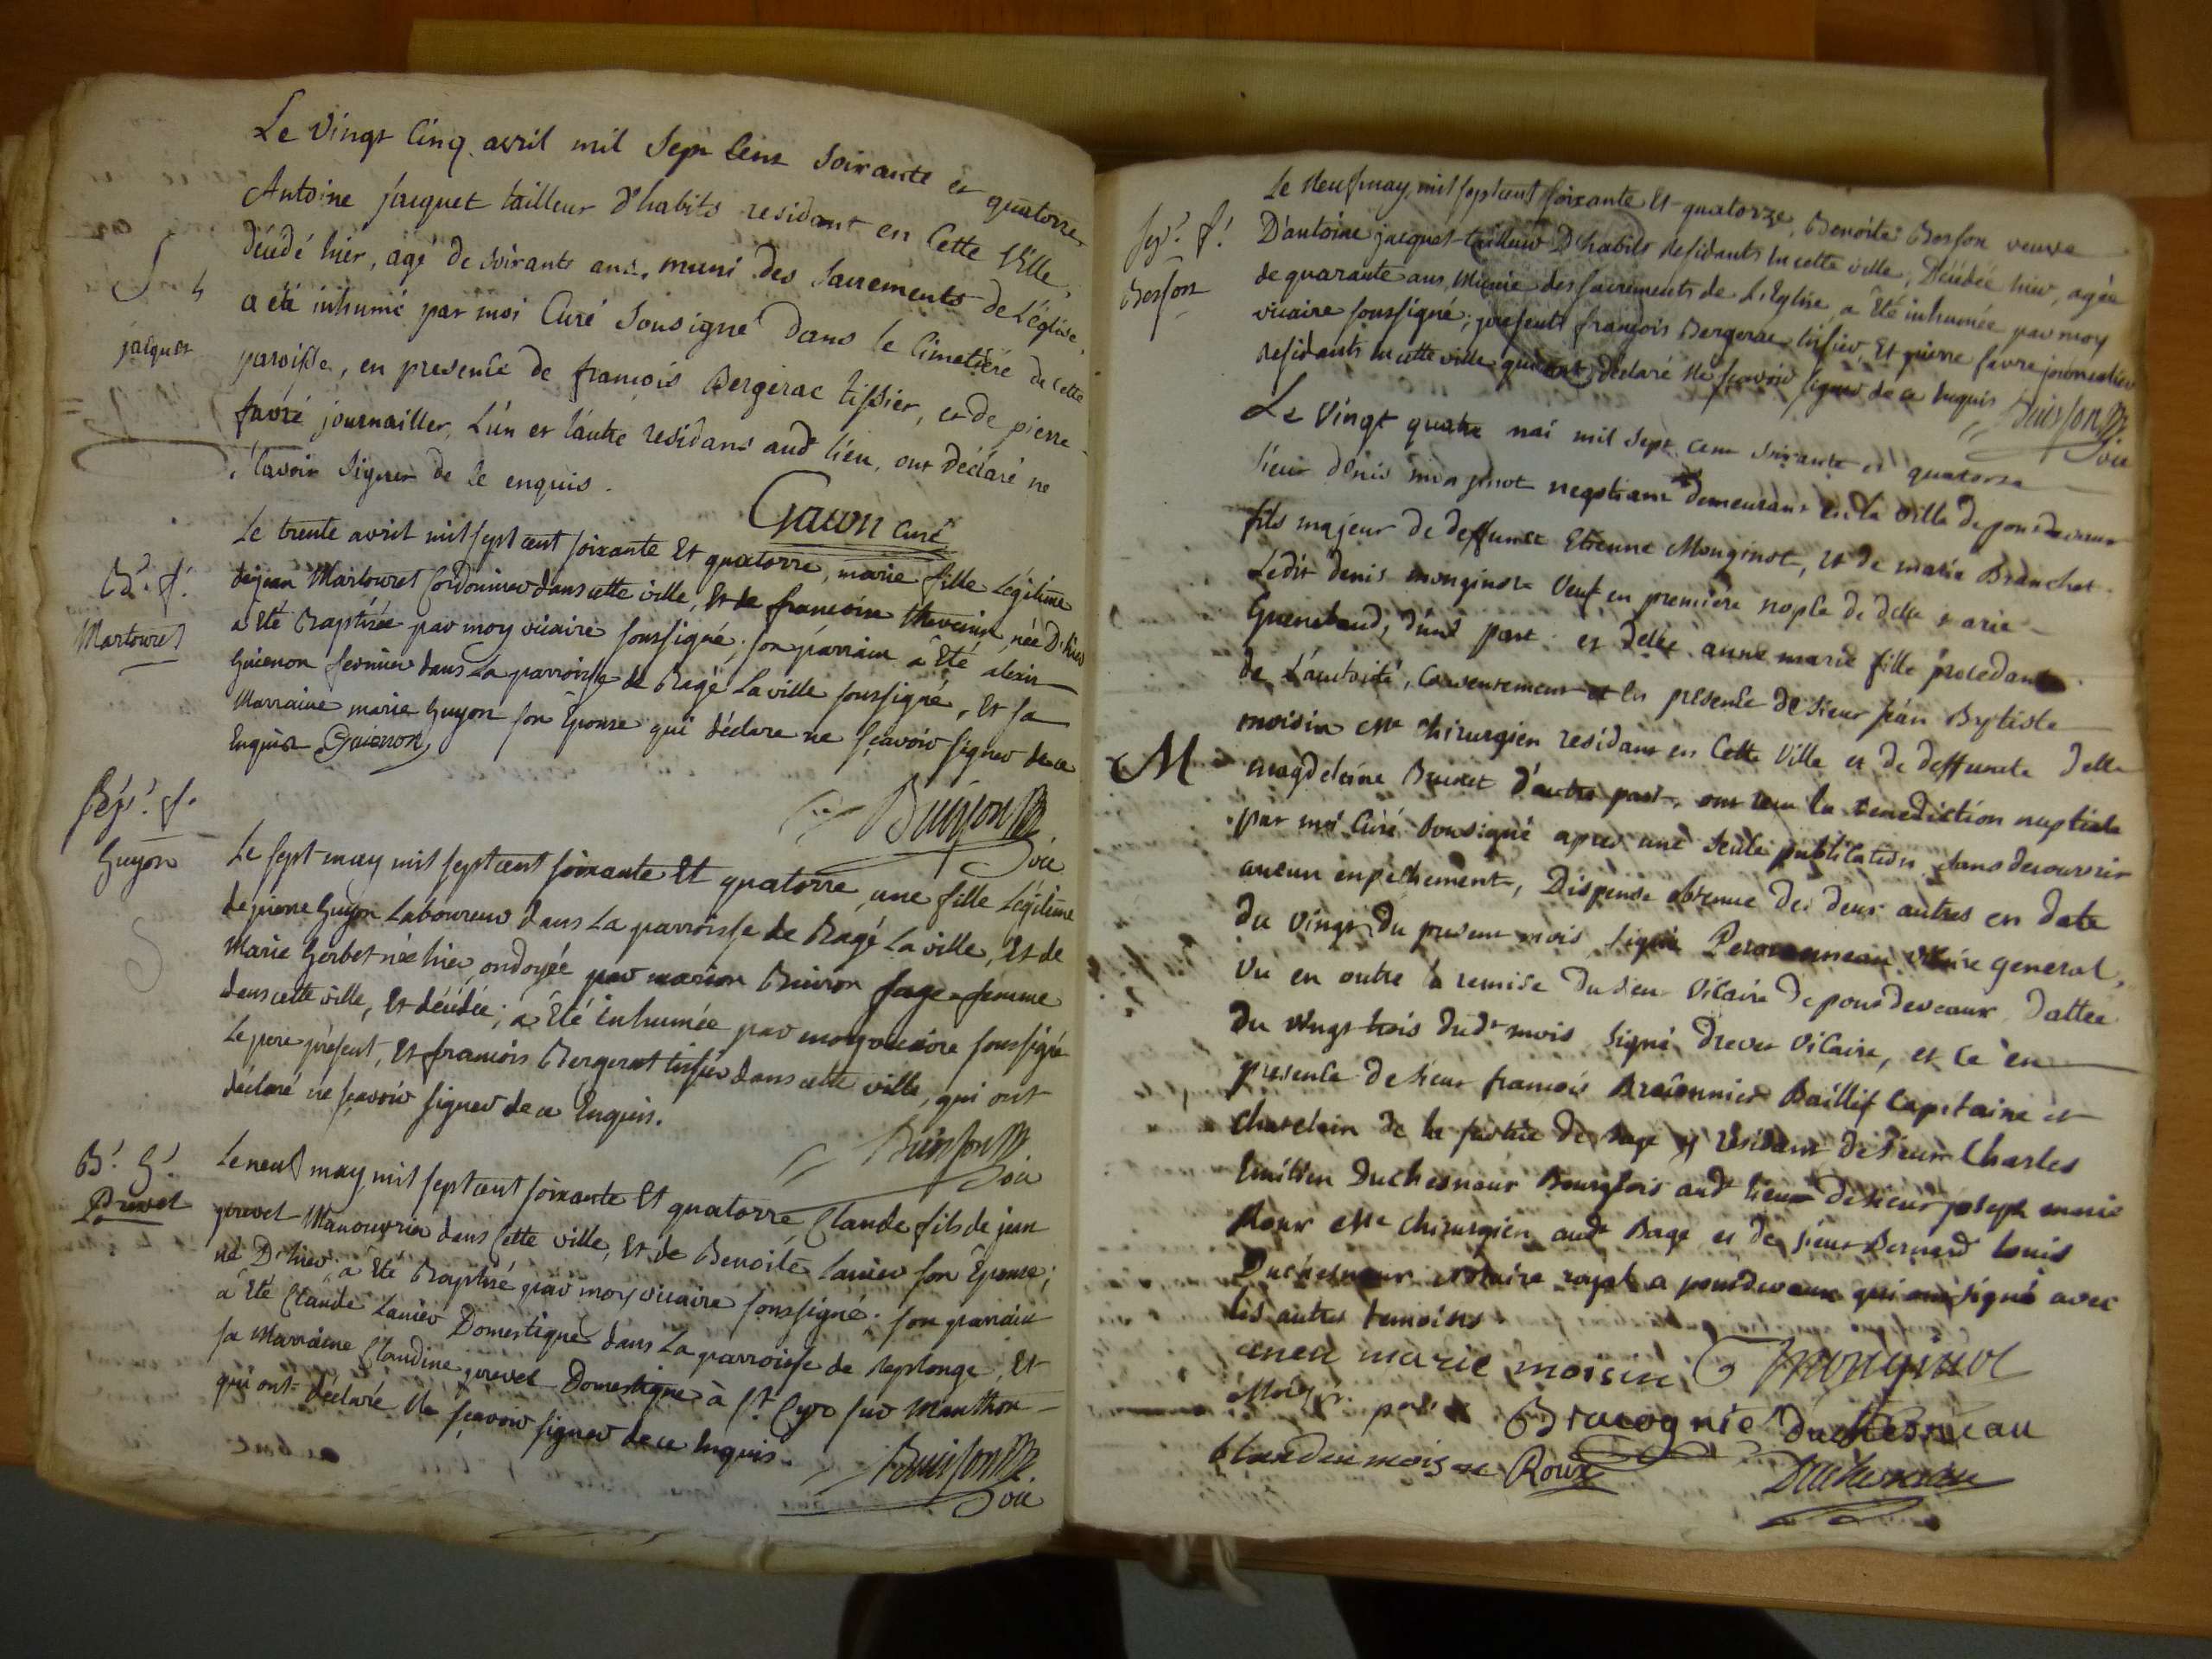 Le Vingt Cinq avril mil Sept Cent Soixante et quatorze
Antoine jacquet tailleur d'habits residant en Cette Ville,
décédé hier, agé de soixante ans, muni des Sacrements de L'église,
a été inhumé par moi Curé Sousigné dans le Cimetiére de Cette
paroisse, en presence de françois Bergerac tissier, et de pierre
favre journailler, L'un et l'autre residans audt lieu, ont déclaré ne
savoir signer de ce enquis.
S h
jacquet
Gacon Curé
Bt. f.
Martouret
Le trente avril mil sept cent soixante Et quatorze, marie fille Légitime
de jean Martouret Cordonnier dans cette ville, Et de francoise Thevenin, née D'hier
a Eté Baptisée par moy vicaire soussigné; son parrain a Eté alexis
Guienon fermier dans La parroisse de Bagé La ville soussigné, Et sa
Marraine marie Guyon son Epouse qui déclare ne sçavoir signer de ce
Enquise Guienon
Buisson
vic
Sép.r f.
Guyon
Le sept may mil sept cent soixante Et quatorze, une fille Légitime
de pierre Guyon Laboureur dans La parroisse de Bagé La ville, Et de
Marie Gerbet née hier, ondoyée par marion Buiron sage-femme
dans cette ville, Et décédée; a Eté inhumée par moy vicaire soussigné
Le pere présent, Et francois Bergerat tissier dans cette ville, qui ont
déclaré ne sçavoir signer de ce Enquis.
Buisson
vic
B.t G.
Prevet
Le neuf may mil sept cent soixante Et quatorze, Claude fils de jean
prevet Manouvrier dans Cette ville, Et de Benoite Lanier son Epouse;
né D'hier, a Eté Baptisé par moy vicaire soussigné; son parrain
a Eté Claude Lanier Domestique dans La parroisse de Replonge, Et
sa Marraine Claudine prevet Domestique à St Cyr sur Manthon
qui ont déclaré Ne sçavoir signer de ce Enquis.
Buisson
vic
Sep.r f.
Besson
Le Neuf may mil sept cent soixante Et quatorze, Benoite Besson veuve
D'antoine jacquet tailleur D'habits Residants En cette ville, Décédée hier, agée
de quarante ans, Munie des sacrements de L'Eglise a Eté inhumée par moy
vicaire soussigné; presents françois Bergerac tissier, Et pierre favre journalier
Residants en cette ville qui ont déclaré Ne sçavoir signer de ce Enquis
Buisson
vic
M
Le Vingt quatre mai mil Sept Cent Soixante et quatorze
sieur denis monginot negotiant demeurant en la ville de pontdevaux
fils majeur de deffunct Etienne Monginot, et de marie Branchet.
Ledit denis monginot Veuf en premiere nopce de delle marie
, d'une part. et delle anne marie fille procedante
de L'autorité, Consentement et en presence de Sieur jean Baptiste
moisin Mtre Chirurgien residant en Cette Ville et de deffuncte delle
magdeleine d'autre part, ont recu la benediction nuptiale
par moi Curé Sousigné apres une Seule publication sans decouvrir
aucun enpéchement, Dispense obtenue des deux autres en date
du Vingt du present mois Signée vicaire general,
Vu en outre la remise du sieur Vicaire de pontdevaux dattée
du vingt trois dudt mois Signé drevet Vicaire, et Ce en
presence de sieur francois Baillif Capitaine et
Chatelain de la justice de Bagé y residant de sieur Charles
Emilien Duchesnaux Bourgeois audt lieu de sieur joseph marie
Roux Mtre chirurgien audt Bagé et de sieur Bernard Louis
notaire royal a pontdevaux qui ont signé avec
les autres temoins.
anne marie moisin Monginot
Moisin pere Bracognié duchesneau
moisin Roux Duchesneau